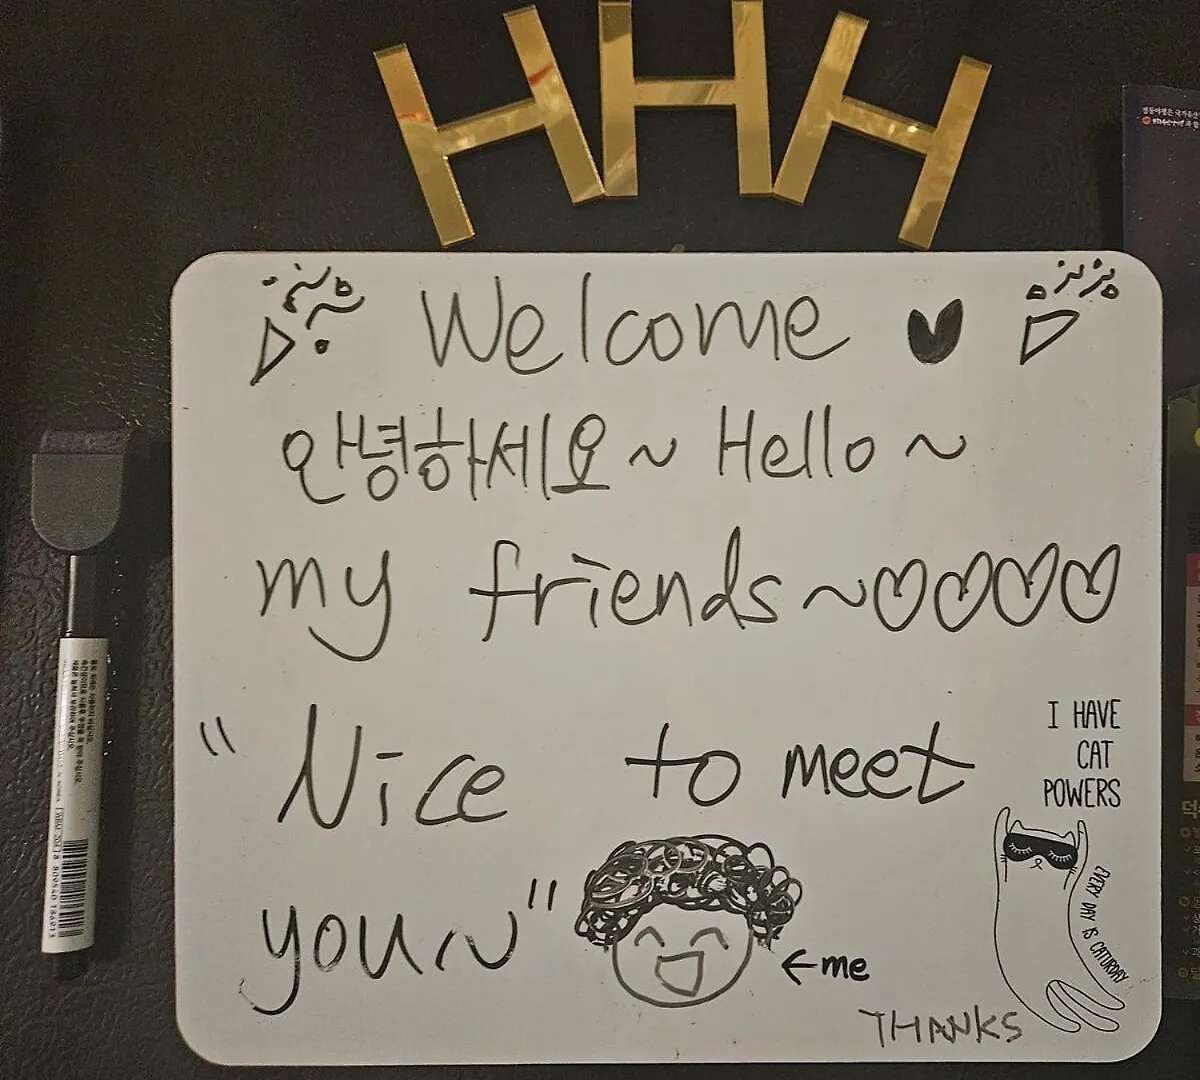 HHH
Welcome ♥
안녕하세요~ Hello ~
my friends~♡♡♡♡
I HAVE
CAT
POWERS
"Nice to meet
you~"
←me
EVERY DAY IS CATURDAY
THANKS